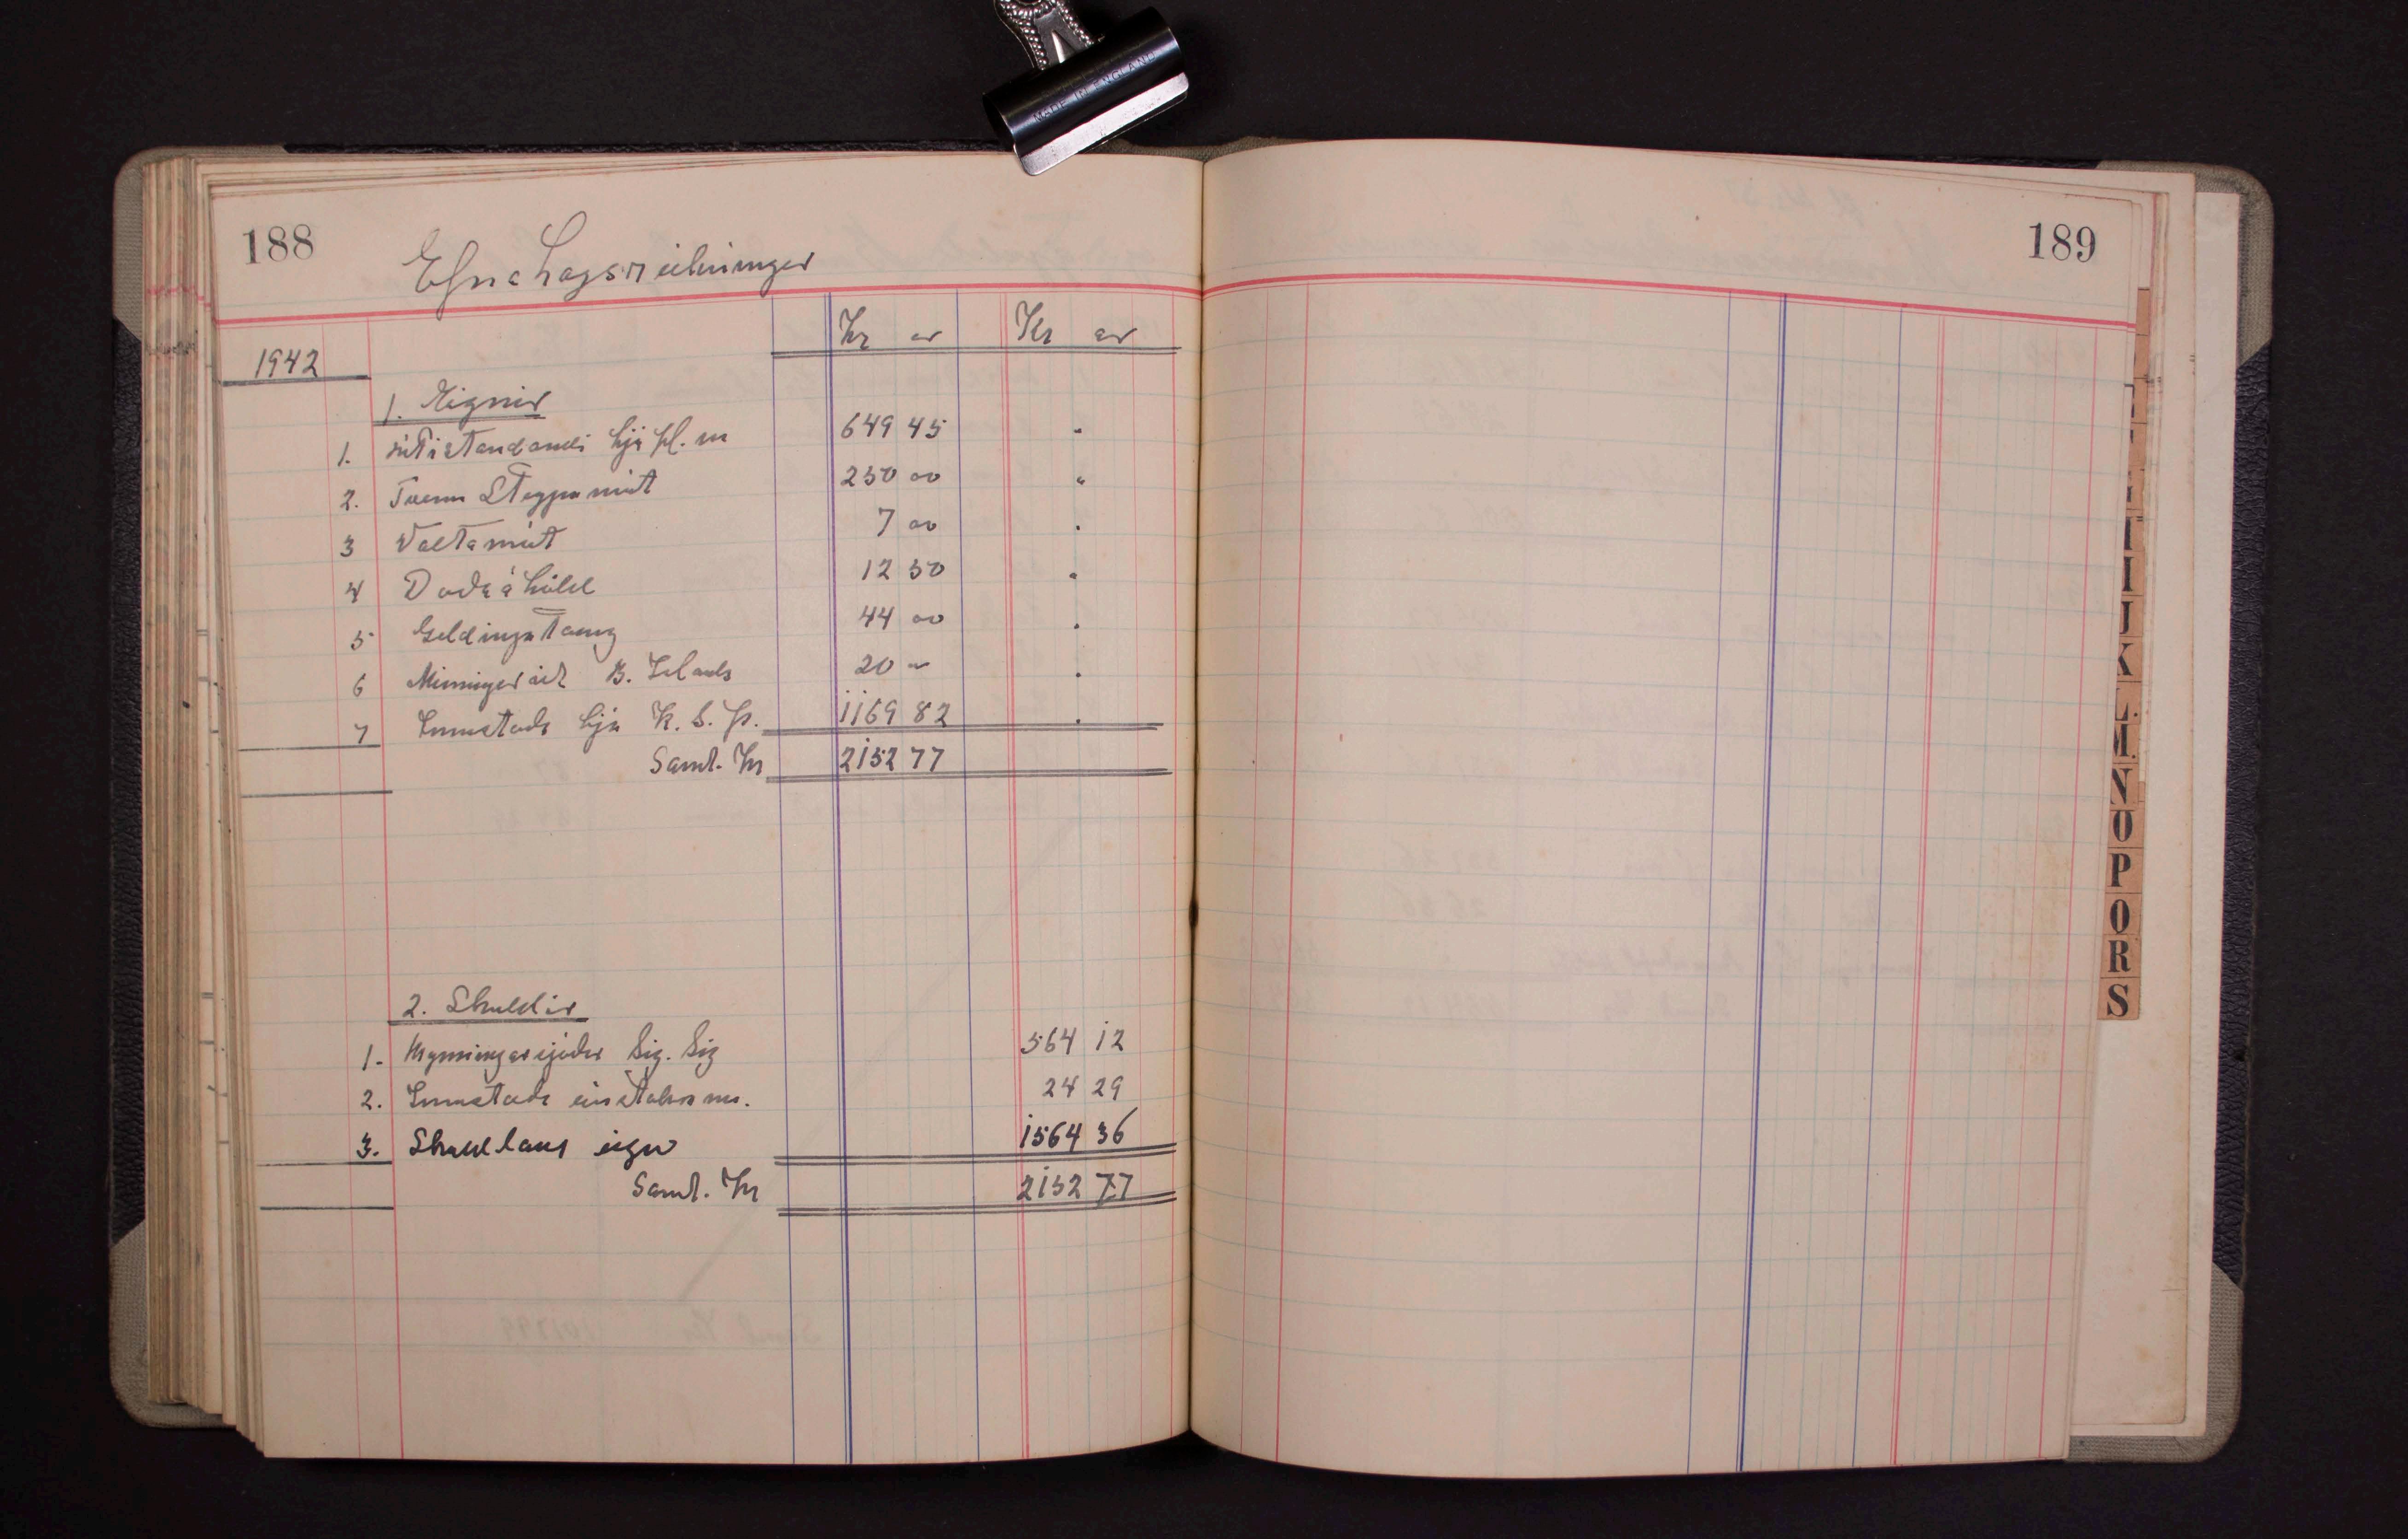 MADE IN ENGLAND
188 Efnahagsreikningur
Kr ar Kr ar
1942
1. Eignir
1. útistandandi hjá fél. m 649 45 "
2. Tvenn Steypumót 250 00 "
3 Valtamót 7 00 "
4 Voðáhöld 12 50 "
5 Geldingatöng 44 00 "
6 Minningarit B. Íslands 20 00 "
7 Innstæða hjá K. S. Þ. 1169 82 "
Saml. Kr 2152 77
2. Skuldir
1. Menningarsjóður Sig. Sig 564 12
2. Innstæða einstakra m. 24 29
3. Skuldlaus eign 1564 36
Saml. Kr 2152 77
189
I
J
K
L.
M.
N
O
P
Q
R
S